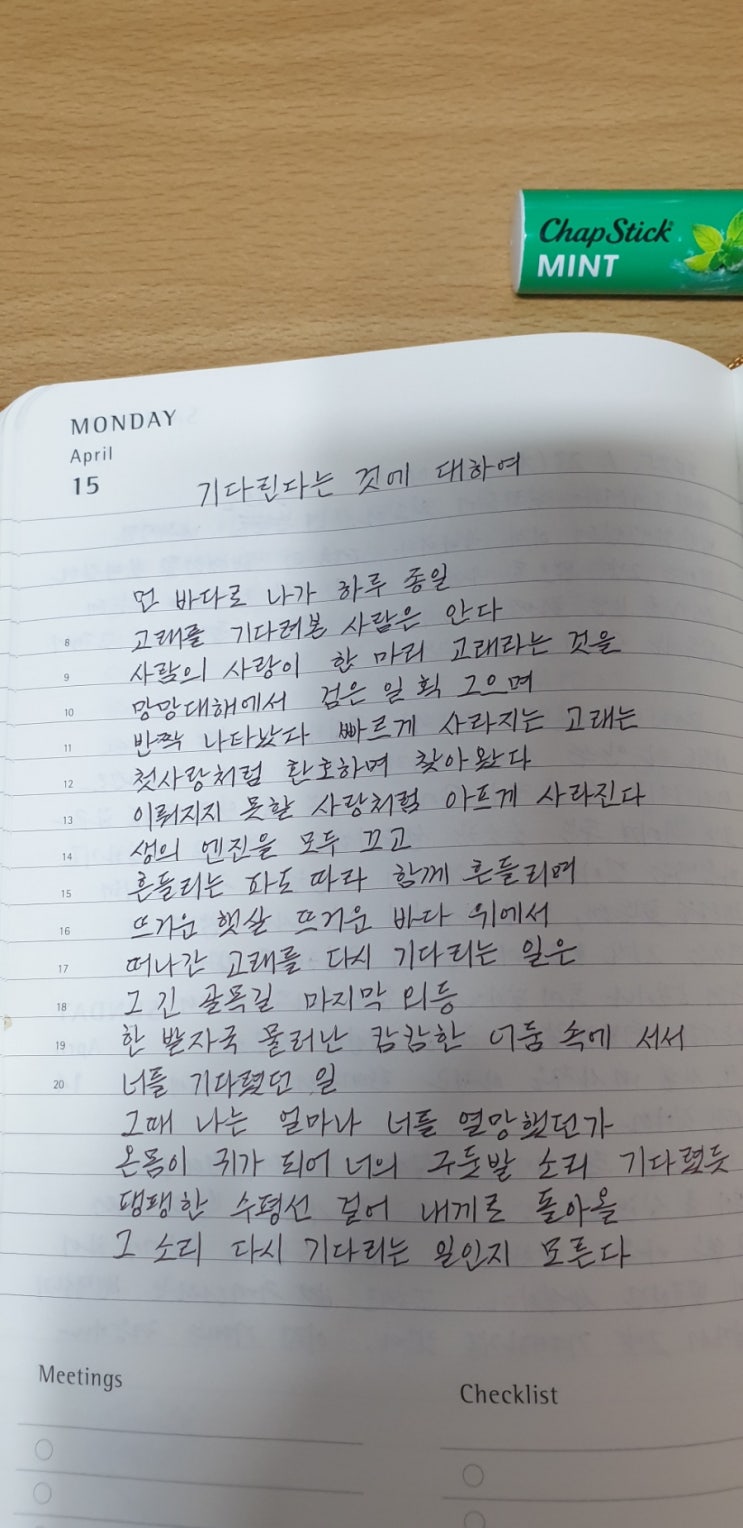 ChapStick
MINT
MONDAY
April
15
기다린다는 것에 대하여
먼 바다로 나가 하루 종일
8 고래를 기다려본 사람은 안다
9 사람의 사랑이 한 마리 고래라는 것을
10 망망대해에서 검은 일 획 그으며
11 반짝 나타났다 빠르게 사라지는 고래는
12 첫사랑처럼 환호하며 찾아왔다
13 이뤄지지 못할 사랑처럼 아프게 사라진다
14 생의 엔진을 모두 끄고
15 흔들리는 파도 따라 함께 흔들리며
16 뜨거운 햇살 뜨거운 바다 위에서
17 떠나간 고래를 다시 기다리는 일은
18 그 긴 골목길 마지막 외등
19 한 발자국 물러난 캄캄한 어둠 속에 서서
20 너를 기다렸던 일
그때 나는 얼마나 너를 열망했던가
온몸이 귀가 되어 너의 구둣발 소리 기다렸듯
팽팽한 수평선 걸어 내게로 돌아올
그 소리 다시 기다리는 일인지 모른다
Meetings
Checklist